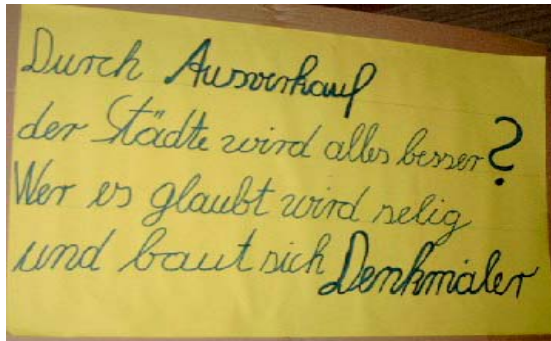 Durch Ausverkauf
der Städte wird alles besser?
Wer es glaubt wird selig
und baut sich Denkmäler